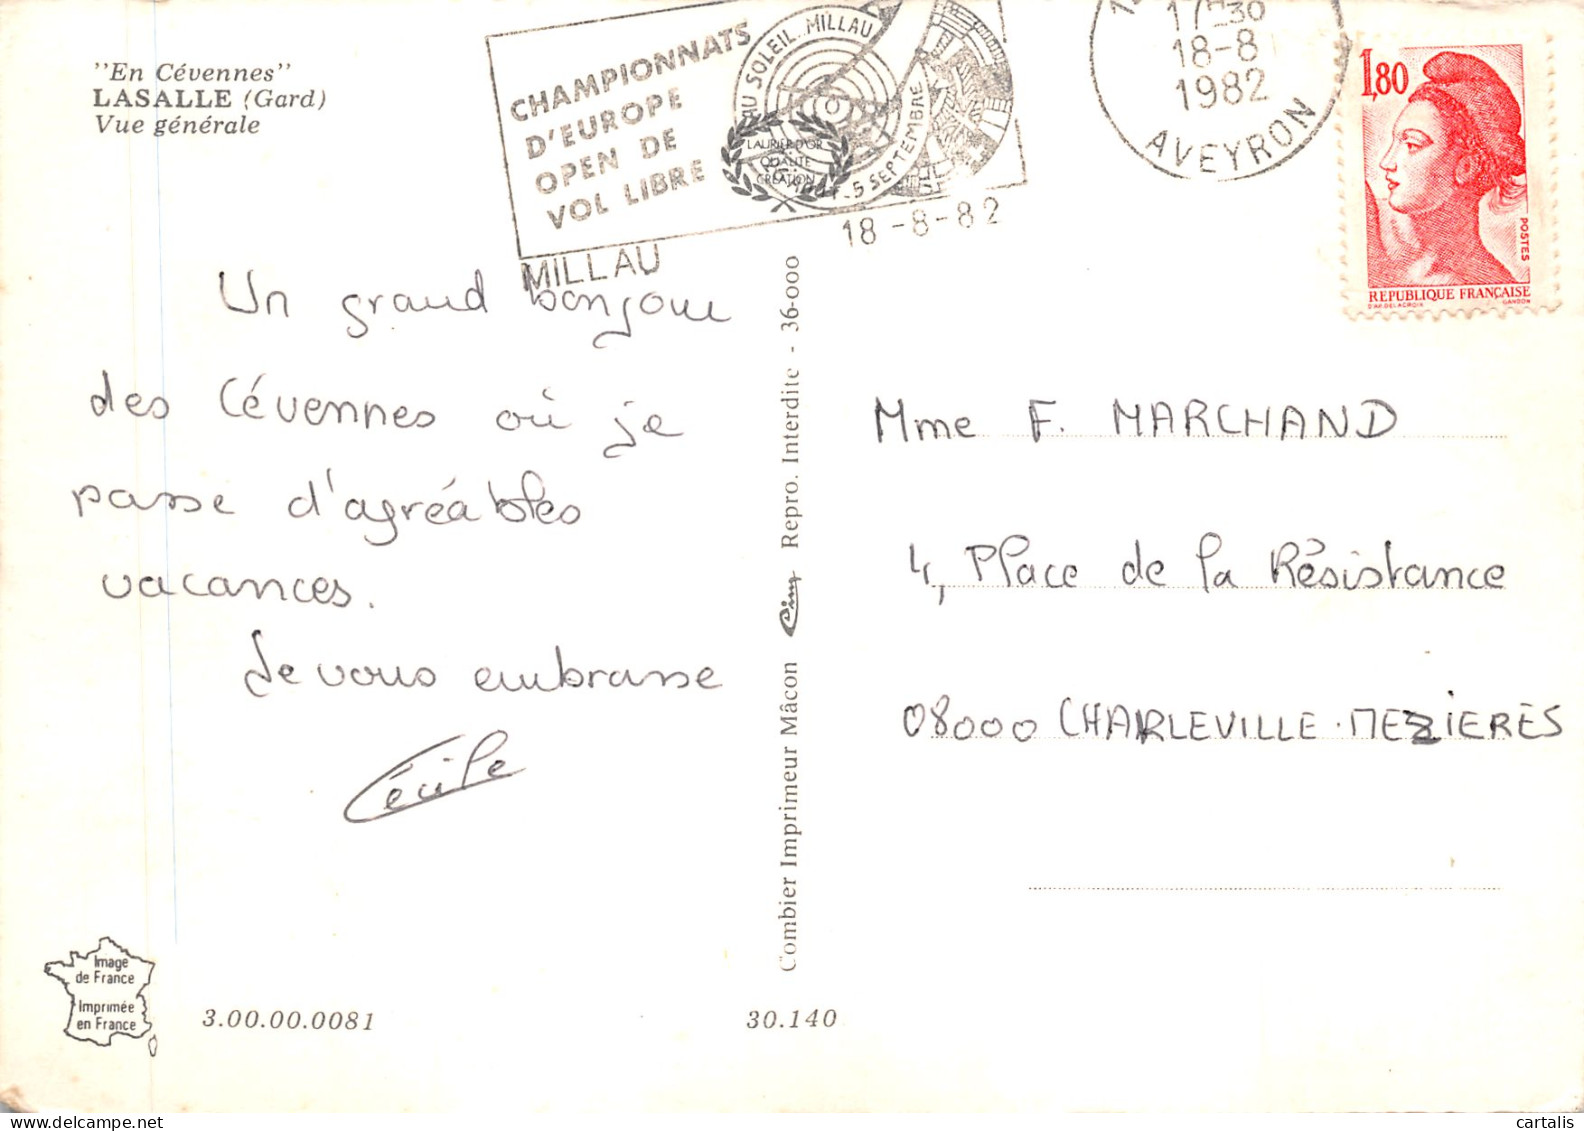 "En Cévennes"
LASALLE (Gard)
Vue générale
CHAMPIONNATS
D'EUROPE
OPEN DE
VOL LIBRE
AU SOLEIL MILLAU
5 SEPTEMBRE
LAURIER D'OR
QUALITÉ
CRÉATION
MILLAU
18-8-82
17H30
18-8
1982
AVEYRON
1,80
POSTES
REPUBLIQUE FRANÇAISE
D'AP. DELACROIX GANDON
Un grand bonjour
des Cévennes où je
passe d'agréables
vacances.
Je vous embrasse
Cécile
Combier Imprimeur Mâcon Cim Repro. Interdite - 36-000
Mme F. MARCHAND
4, Place de la Résistance
08000 CHARLEVILLE-MEZIERES
Image
de France
Imprimée
en France
3.00.00.0081
30.140
cartalis